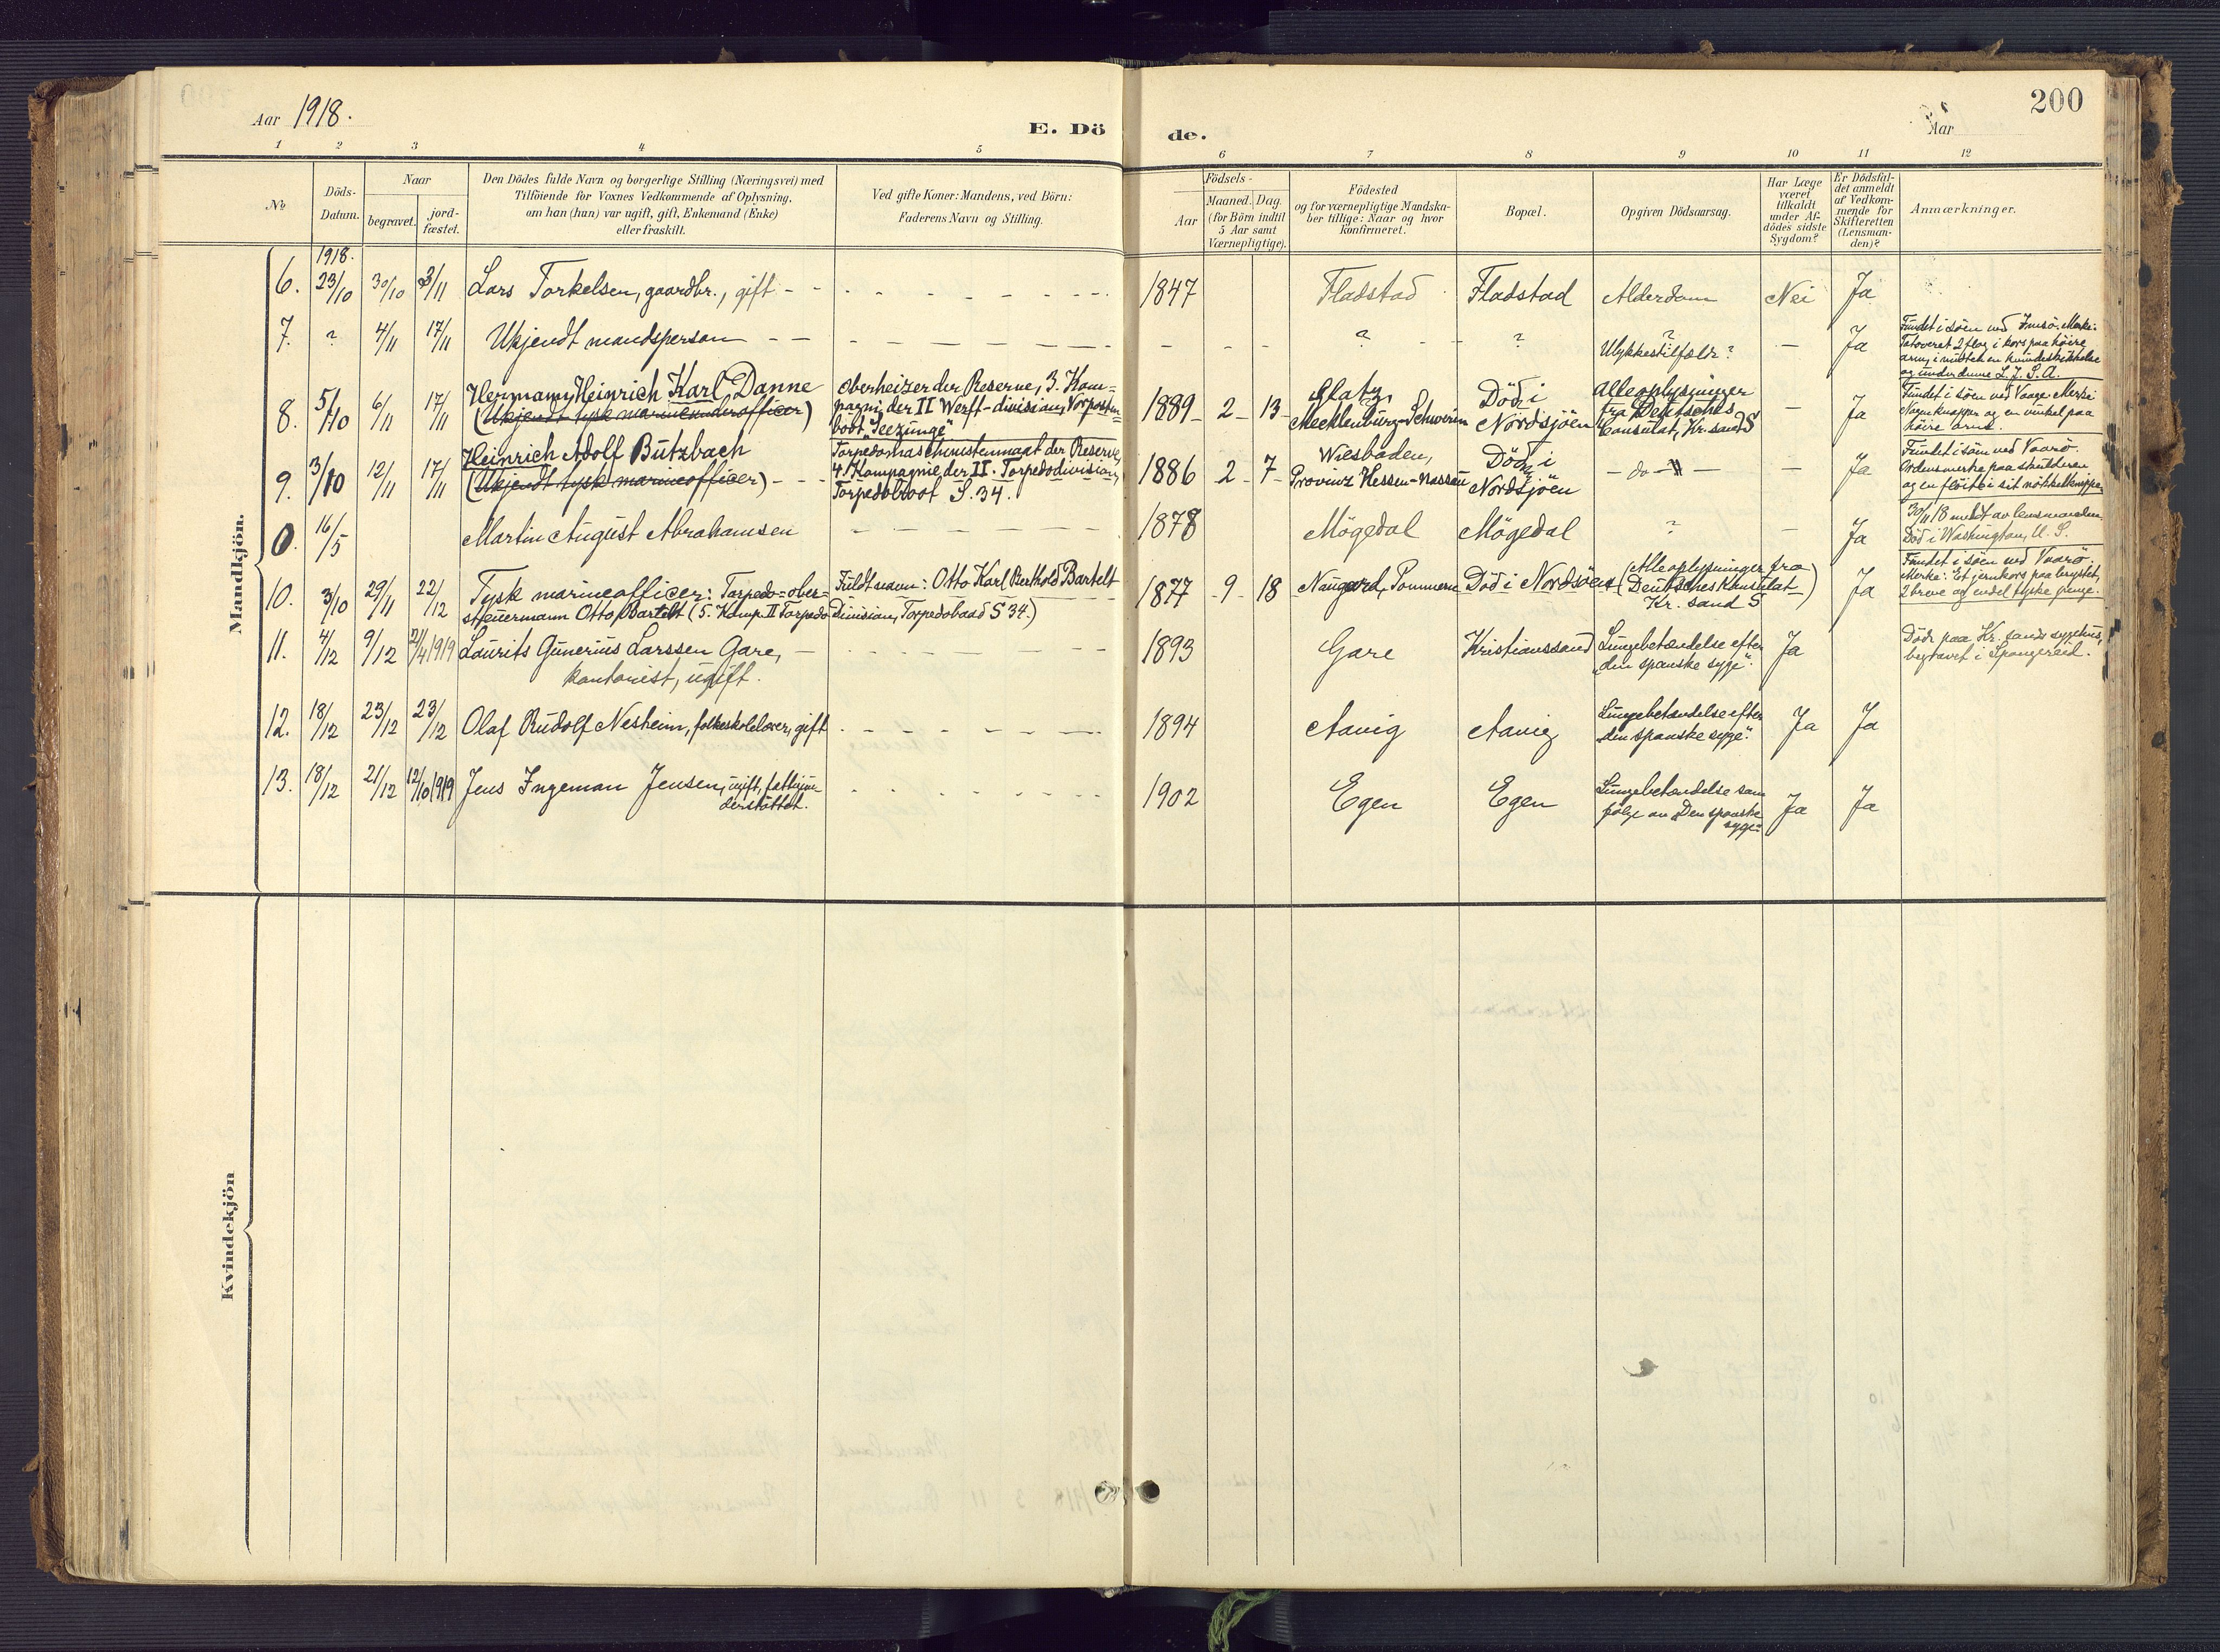 Aar 1918.
E. Döde.
Aar
200
1 2 3 4 5 6 7 8 9 10 11 12
№
Döds-Datum.
Naar
begravet.
jord-fæstet.
Den Dödes fulde Navn og borgerlige Stilling (Næringsvei) med
Tilföiende for Voxnes Vedkommende af Oplysning,
om han (hun) var ugift, gift, Enkemand (Enke)
eller fraskilt.
Ved gifte Koner: Mandens, ved Börn:
Faderens Navn og Stilling.
Födsels-
Aar
Maaned. Dag.
(for Börn indtil
5 Aar samt
Værnepligtige).
Födested
og for værnepligtige Mandska-
ber tillige: Naar og hvor
konfirmeret.
Bopæl.
Opgiven Dödsaarsag.
Har Læge
været
tilkaldt
under Af-
dödes sidste
Sygdom?
Er Dödsfal-
det anmeldt
af Vedkom-
mende for
Skifteretten
(Lensman-
den)?
Anmærkninger.
Mandkjön.
1918.
6. 23/10 30/10 3/11 Lars Torkelsen, gaardbr., gift - - 1847 Fladstad Fladstad Alderdom Nei Ja
7. ? 4/11 17/11 Ukjendt mandsperson - - ? ? ?
Ulykkestilfælde? — Ja
Fundet i söen ved Imsö. Merke:
Tatoveret 2 flag i kors paa höire
arm, i midten en kvindeskikkelse
og under denne L. J. S. A.
8. 5/10 6/11 17/11 Hermann Heinrich Karl Danne
(Ukjendt tysk marineunderofficer)
Oberheizer der Reserve, 3. Kom-
pagni der II Werft-division, Vorposten-
boot "Seezunge"
1889 - 2 - 13 - Glatz,
Mecklenburg-Schwerin
Död i
Nordsjöen
Alle oplysninger
fra Deutsches
Consulat, Kr.sand S
— Ja
Fundet i söen ved Vaage. Merke:
Navneknapper og en vinkel paa
höire arm.
9. 3/10 12/11 17/11 Heinrich Adolf Butzbach
(Ukjendt tysk marineofficer) - - -
Torpedomaschinistenmaat der Reserve,
4. Kompagnie der II. Torpedodivision,
Torpedoboot S. 34.
1886 - 2 - 7 - Wiesbaden,
Provinz Hessen-Nassau
Död i
Nordsjöen
— do — — Ja
Fundet i söen ved Vaarö.
Ordensmerke paa skulderen
og en flöite i sit
0. 16/5 Martin August Abrahamsen 1878 Mögedal Mögedal ? — Ja
30/11 18 meldt av lensmanden.
Död i Washington, U. S.
10. 3/10 29/11 22/12 Tysk marineofficer: Torpedo-ober-
steuermann Otto Bartelt (5. Komp. II Torpedo
Fuldt navn: Otto Karl Berthold Bartelt
Division, Torpedobaad S 34.)
1877 - 9 - 18 Naugard, Pommern Död i Nordsöen (Alle oplysninger fra
Deutsches Konsulat
Kr. sand S) Ja
Fundet i söen ved Vaarö.
Merke: Et jernkors paa brystet,
2 breve og endel tyske penge.
11. 4/12 9/12 21/4 1919 Laurits Gunerius Larssen Gare, —
kontorist, ugift.
1893 Gare Kristianssand Lungebetændelse efter
"den spanske syge". Ja
Döde paa Kr. sands sygehus,
begravet i Spangereid.
12. 18/12 23/12 23/12 Olaf Rudolf Nesheim, folkeskolelærer, gift 1894 Aavig Aavig Lungebetændelse efter
"den spanske syge". Ja Ja
13. 18/12 21/12 12/10 1919 Jens Ingeman Jensen, ugift, fattigun-
derstöttet.
1902 Egen Egen Lungebetændelse som
fölge av "Den spanske
syge". Ja Ja
Kvindekjön